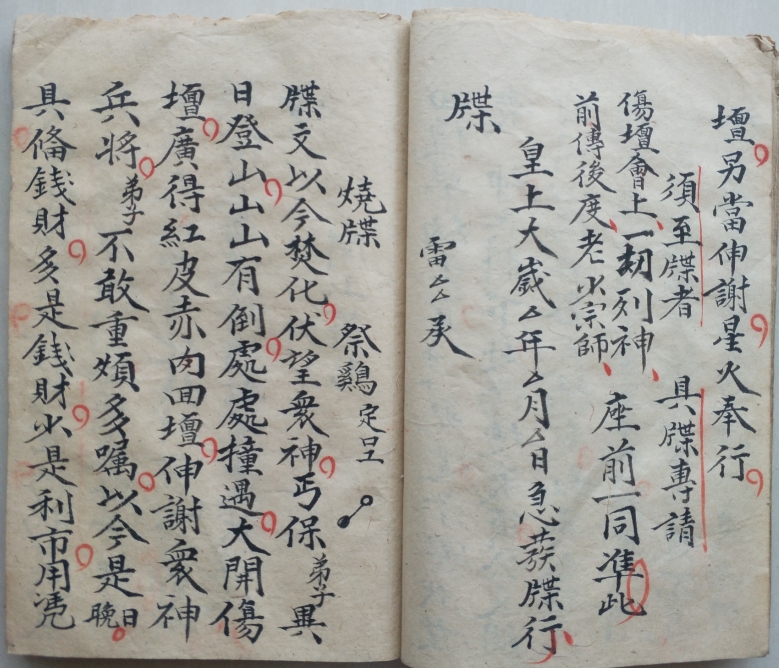 壇另當伸謝星火奉行
須至牒者 具牒專請
傷壇會上一切列神 座前一同準此
前傳後度老少宗師
皇上大歲厶年厶月厶日急蔟牒行
牒
雷厶厶承
燒牒 祭鷄定呈
牒文以今焚化伏望衆神丐保弟子異
日登山山山有倒處處撞遇大開傷
壇廣得紅皮赤肉回壇伸謝衆神
兵將弟子不敢重煩多嘱以今是晚日
具偹錢財多是錢財少是利市用凴